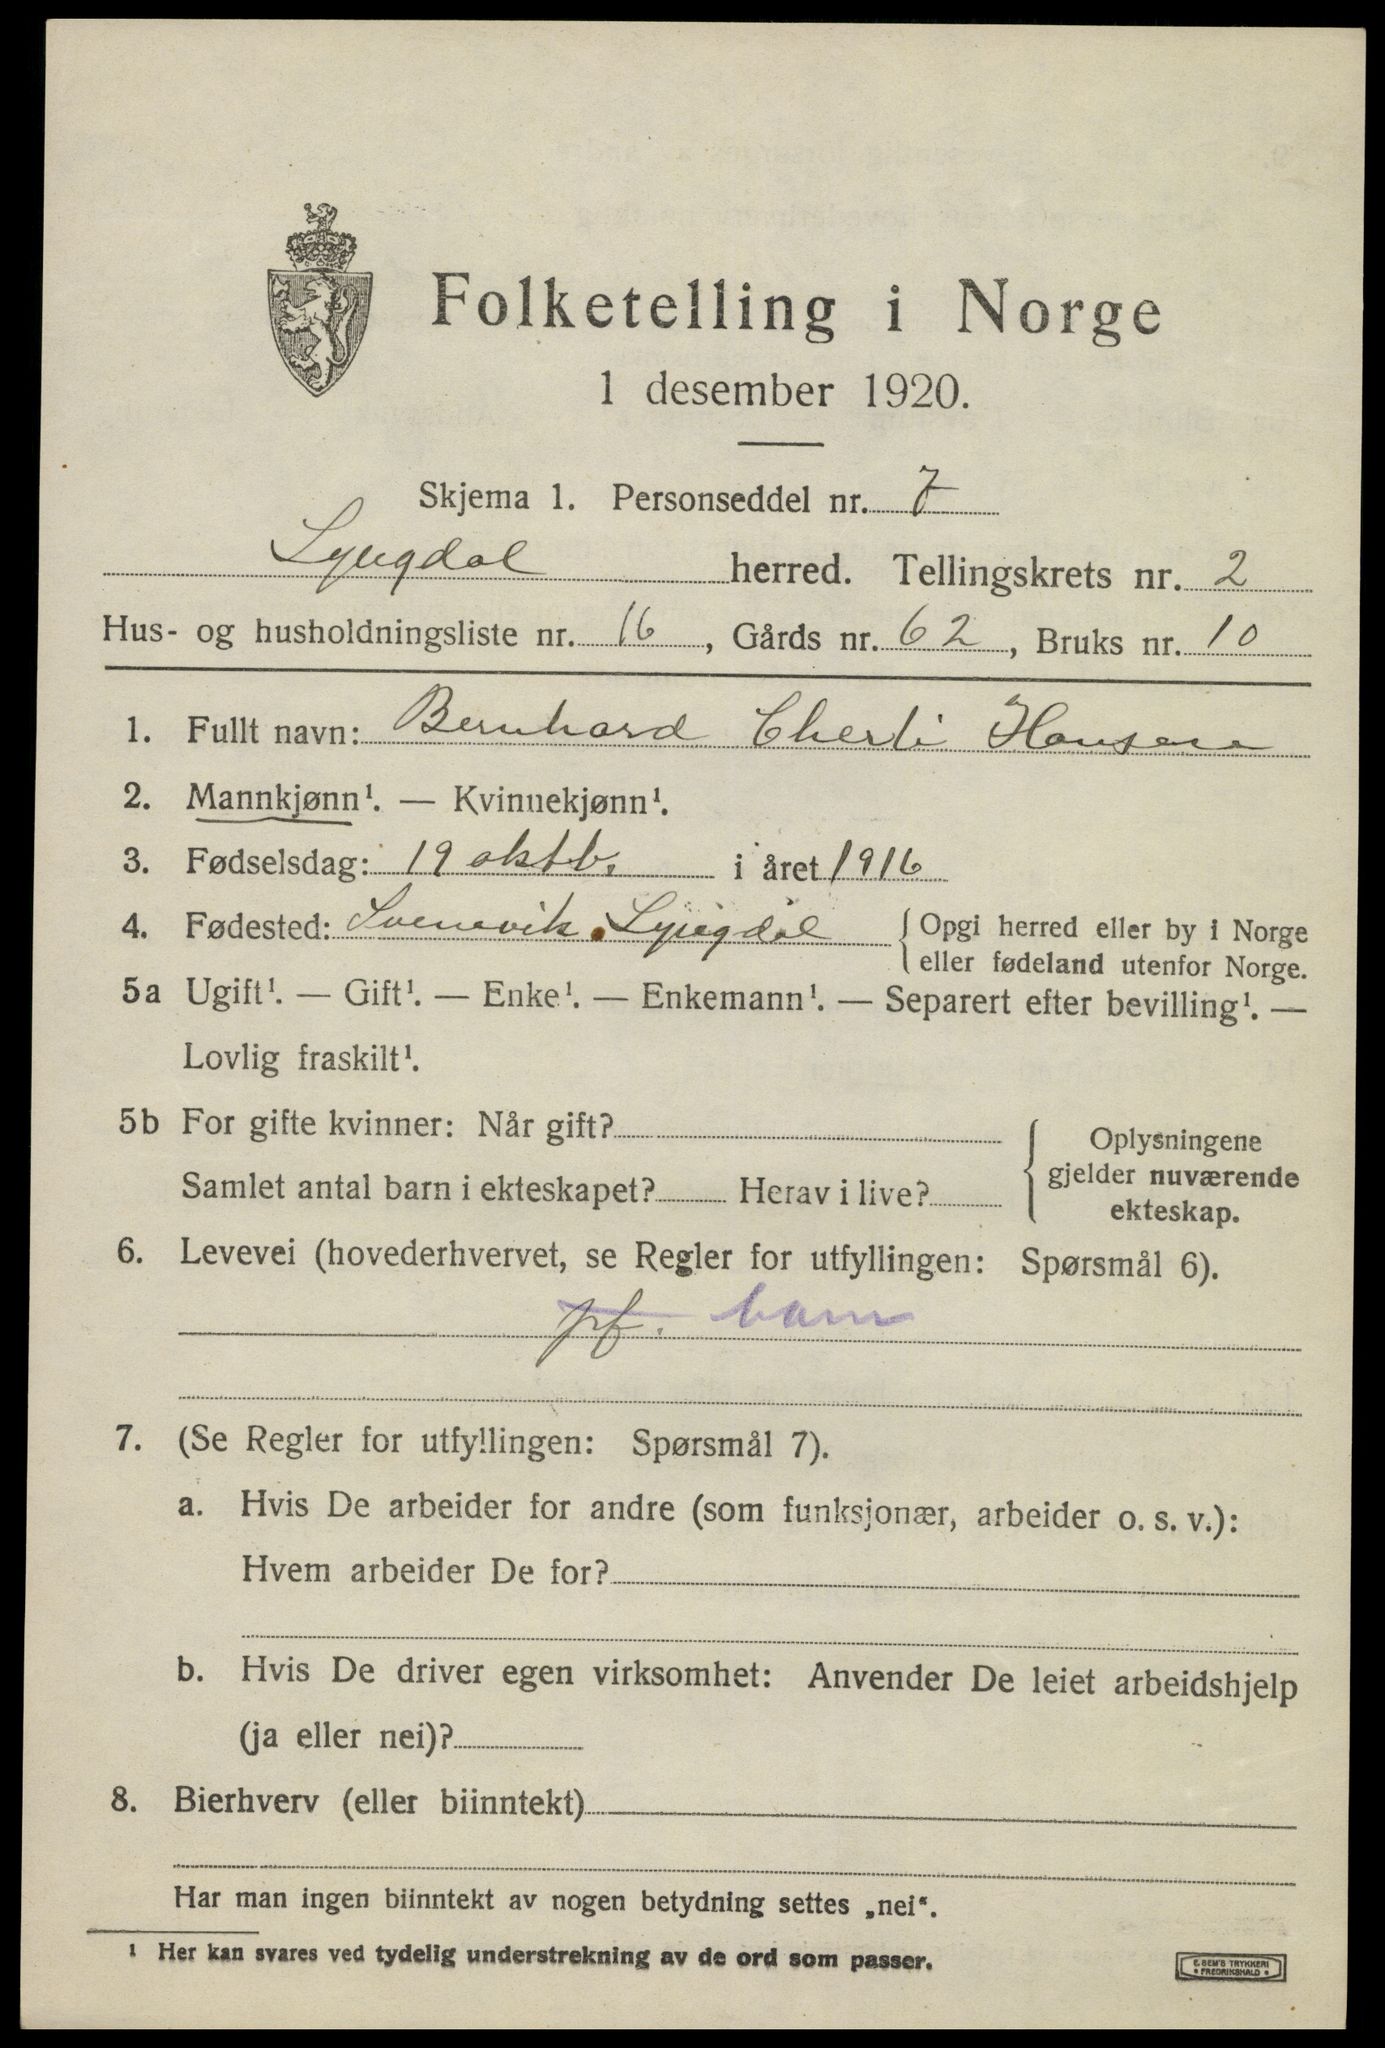 Folketelling i Norge
1 desember 1920.
Skjema 1. Personseddel nr. 7
Lyngdal herred. Tellingskrets nr. 2
Hus- og husholdningsliste nr. 16, Gårds nr. 62, Bruks nr. 10
1. Fullt navn: Bernhard Cherli Hansen
2. Mannkjønn¹. — Kvinnekjønn¹.
3. Fødselsdag: 19 oktb. i året 1916
4. Fødested: Svenevik. Lyngdal { Opgi herred eller by i Norge
eller fødeland utenfor Norge.
5a Ugift¹. — Gift¹. — Enke¹. — Enkemann¹. — Separert efter bevilling¹. —
Lovlig fraskilt¹.
5b For gifte kvinner: Når gift?
Samlet antal barn i ekteskapet? Herav i live?
{ Oplysningene
gjelder nuværende
ekteskap.
6. Levevei (hovederhvervet, se Regler for utfyllingen: Spørsmål 6).
pf. barn
7. (Se Regler for utfyllingen: Spørsmål 7).
a. Hvis De arbeider for andre (som funksjonær, arbeider o. s. v.):
Hvem arbeider De for?
b. Hvis De driver egen virksomhet: Anvender De leiet arbeidshjelp
(ja eller nei)?
8. Bierhverv (eller biinntekt)
Har man ingen biinntekt av nogen betydning settes „nei“.
¹ Her kan svares ved tydelig understrekning av de ord som passer.
E. SEM'S TRYKKERI
• FREDRIKSHALD •